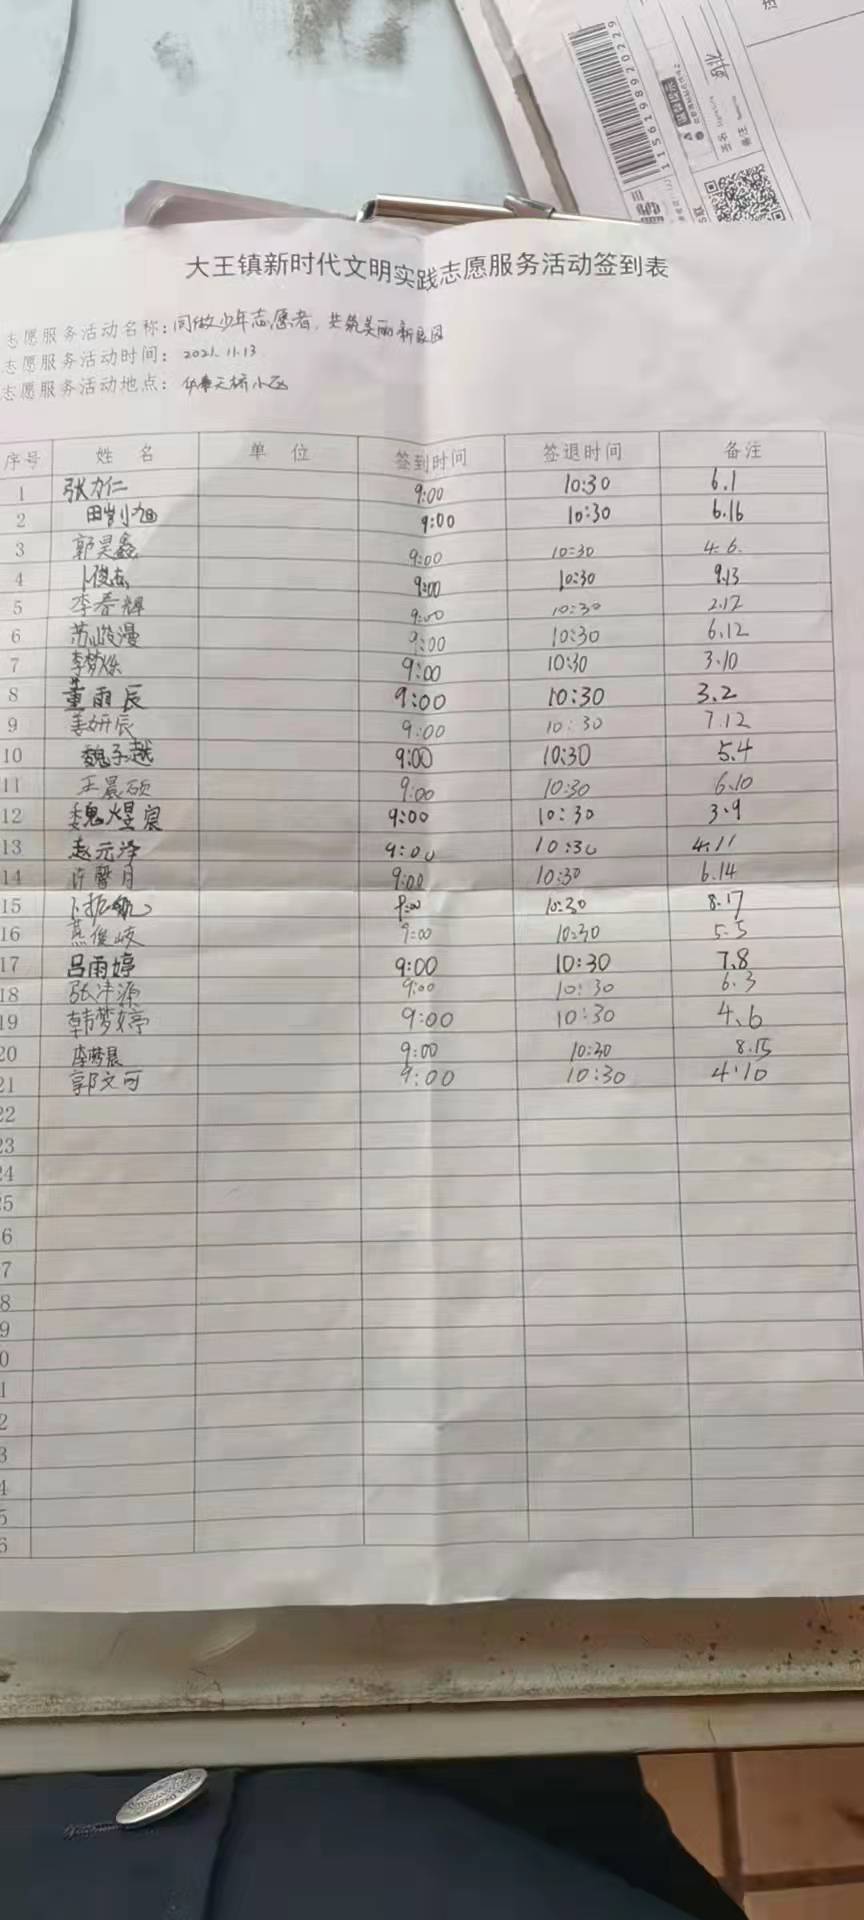 11561989202229
签名
备注
大王镇新时代文明实践志愿服务活动签到表
志愿服务活动名称：同做少年志愿者，共筑美丽新家园
志愿服务活动时间：2021.11.13
志愿服务活动地点：华泰天桥小区
序号 姓名 单位 签到时间 签退时间 备注
1 张力仁 9:00 10:30 6.1
2 田 9:00 10:30 6.16
3 郭昊鑫 9:00 10:30 4.6.
4 卜俊杰 9:00 10:30 9.13
5 李春辉 9:00 10:30 2.12
6 漫 9:00 10:30 6.12
7 李梦烁 9:00 10:30 3.10
8 董雨辰 9:00 10:30 3.2
9 姜妍辰 9:00 10:30 7.12
10 魏子越 9:00 10:30 5.4
11 王晨硕 9:00 10:30 6.10
12 魏煜宸 9:00 10:30 3.9
13 赵元泽 9:00 10:30 4.11
14 许馨月 9:00 10:30 6.14
15 卜振航 9:00 10:30 8.17
16 燕俊岐 9:00 10:30 5.5
17 吕雨婷 9:00 10:30 7.8
18 张沣源 9:00 10:30 6.3
19 韩梦婷 9:00 10:30 4.6
20 李梦晨 9:00 10:30 8.15
21 郭文可 9:00 10:30 4.10
22
23
24
25
6
7
8
9
0
1
2
3
4
5
6